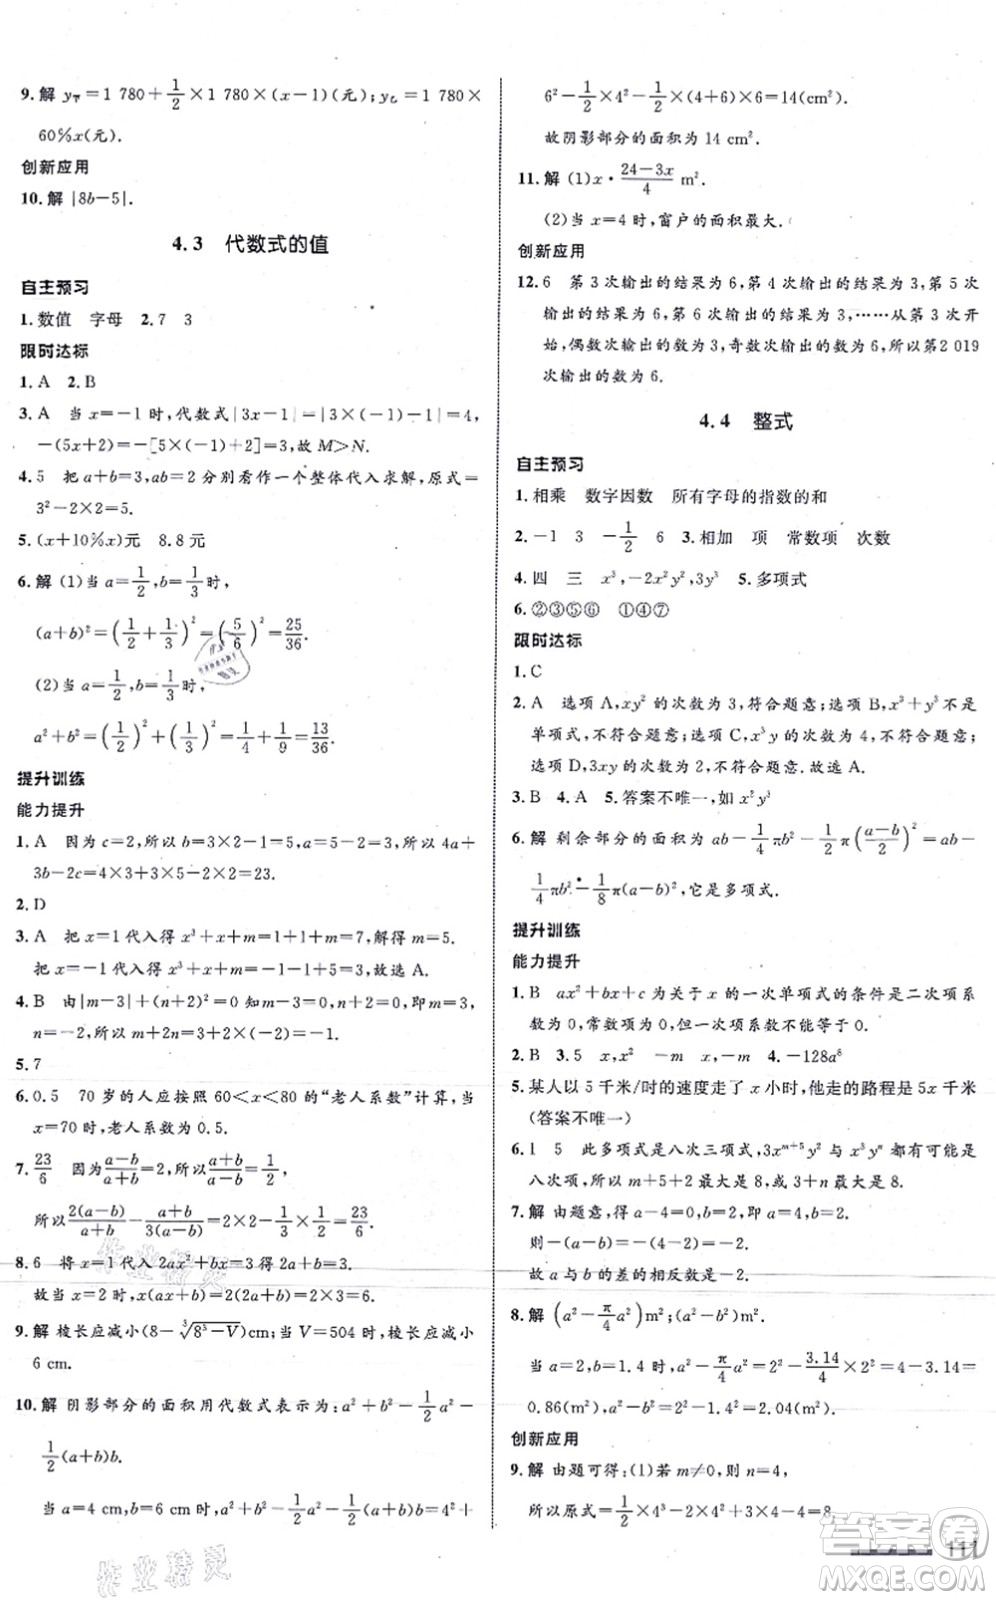 9. 解 y甲=1 780+1/2×1 780×(x-1)(元);y乙=1 780×
60%x(元).
创新应用
10. 解 |8b-5|.
4.3 代数式的值
自主预习
1. 数值 字母 2. 7 3
限时达标
1. A 2. B
3. A 当 x=-1 时,代数式|3x-1|=|3×(-1)-1|=4,
-(5x+2)=-[5×(-1)+2]=3,故 M>N.
4. 5 把 a+b=3,ab=2 分别看作一个整体代入求解,原式=
3²-2×2=5.
5. (x+10%x)元 8.8 元
6. 解 (1)当 a=1/2,b=1/3时,
(a+b)²=(1/2+1/3)²=(5/6)²=25/36.
(2)当 a=1/2,b=1/3时,
a²+b²=(1/2)²+(1/3)²=1/4+1/9=13/36.
提升训练
能力提升
1. A 因为 c=2,所以 b=3×2-1=5,a=5-2=3,所以 4a+
3b-2c=4×3+3×5-2×2=23.
2. D
3. A 把 x=1 代入得 x³+x+m=1+1+m=7,解得 m=5.
把 x=-1 代入得 x³+x+m=-1-1+5=3,故选 A.
4. B 由|m-3|+(n+2)²=0 知,m-3=0,n+2=0,即 m=3,
n=-2,所以 m+2n=3+2×(-2)=-1.
5. 7
6. 0.5 70 岁的人应按照 60<x<80 的“老人系数”计算,当
x=70 时,老人系数为 0.5.
7. 23/6 因为(a-b)/(a+b)=2,所以(a+b)/(a-b)=1/2,
所以2(a-b)/(a+b)-(a+b)/3(a-b)=2×2-1/3×1/2=23/6.
8. 6 将 x=1 代入 2ax²+bx=3 得 2a+b=3.
故当 x=2 时,ax²+bx=4a+2b=2(2a+b)=6.
9. 解 棱长应减小(8-∛(8³-V))cm;当 V=504 时,棱长应减小
6 cm.
10. 解 阴影部分的面积用代数式表示为:a²+b²-1/2a²-
1/2(a+b)b.
当 a=4 cm,b=6 cm 时,a²+b²-1/2a²-1/2(a+b)b=4²+
6²-1/2×4²-1/2×(4+6)×6=14(cm²).
故阴影部分的面积为 14 cm².
11. 解 (1)x·(24-3x)/4 m².
(2)当 x=4 时,窗户的面积最大.
创新应用
12. 6 第 3 次输出的结果为 6,第 4 次输出的结果为 3,第 5 次
输出的结果为 6,第 6 次输出的结果为 3,……从第 3 次开
始,偶数次输出的数为 3,奇数次输出的数为 6,所以第2 019
次输出的数为 6.
4.4 整式
自主预习
1. 相乘 数字因数 所有字母的指数的和
2. -1 3 -1/2 6 3. 相加 项 常数项 次数
4. 四 三 x³,-2x²y²,3y³ 5. 多项式
6. ②③⑤⑥ ①④⑦
限时达标
1. C
2. A 选项 A,xy²的次数为 3,符合题意;选项 B,x³+y³不是
单项式,不符合题意;选项 C,x³y 的次数为 4,不符合题意;
选项 D,3xy 的次数为 2,不符合题意.故选 A.
3. B 4. A 5. 答案不唯一,如 x²y³
6. 解 剩余部分的面积为 ab-1/4πb²-1/2π((a-b)/2)²=ab-
1/4πb²-1/8π(a-b)²,它是多项式.
提升训练
能力提升
1. B ax²+bx+c 为关于 x 的一次单项式的条件是二次项系
数为 0,常数项为 0,一次项系数不能等于 0.
2. B 3. 5 x,x² -m x,-m 4. -128a⁸
5. 某人以 5 千米/时的速度走了 x 小时,他走的路程是 5x 千米
(答案不唯一)
6. 1 5 此多项式是八次三项式,3xᵐ⁺⁵y²与 x³yⁿ 都可能是
八次项,所以 m+5+2 最大是 8,3+n 最大是 8.
7. 解 由题意,得 a-4=0,b=2,所以 a=4,b=2.
则-a-(-b)=-4-(-2)=-4+2=-2.
故 a 与 b 的差的相反数为-2.
8. 解 (a²-π/4a²)m²;ab m².
当 a=2,b=1.4 时,a²-π/4a²=2²-3.14/4×2²=4-3.14=
0.86(m²),ab=2×1.4=2.8(m²).
创新应用
9. 解 由题可得:(1)若 m≠0,则 n=4,m=1/2,
所以原式=1/2×4³-2×4²+4-4=8.
111
答案圈
MXQE.COM
作业精灵
作业精灵